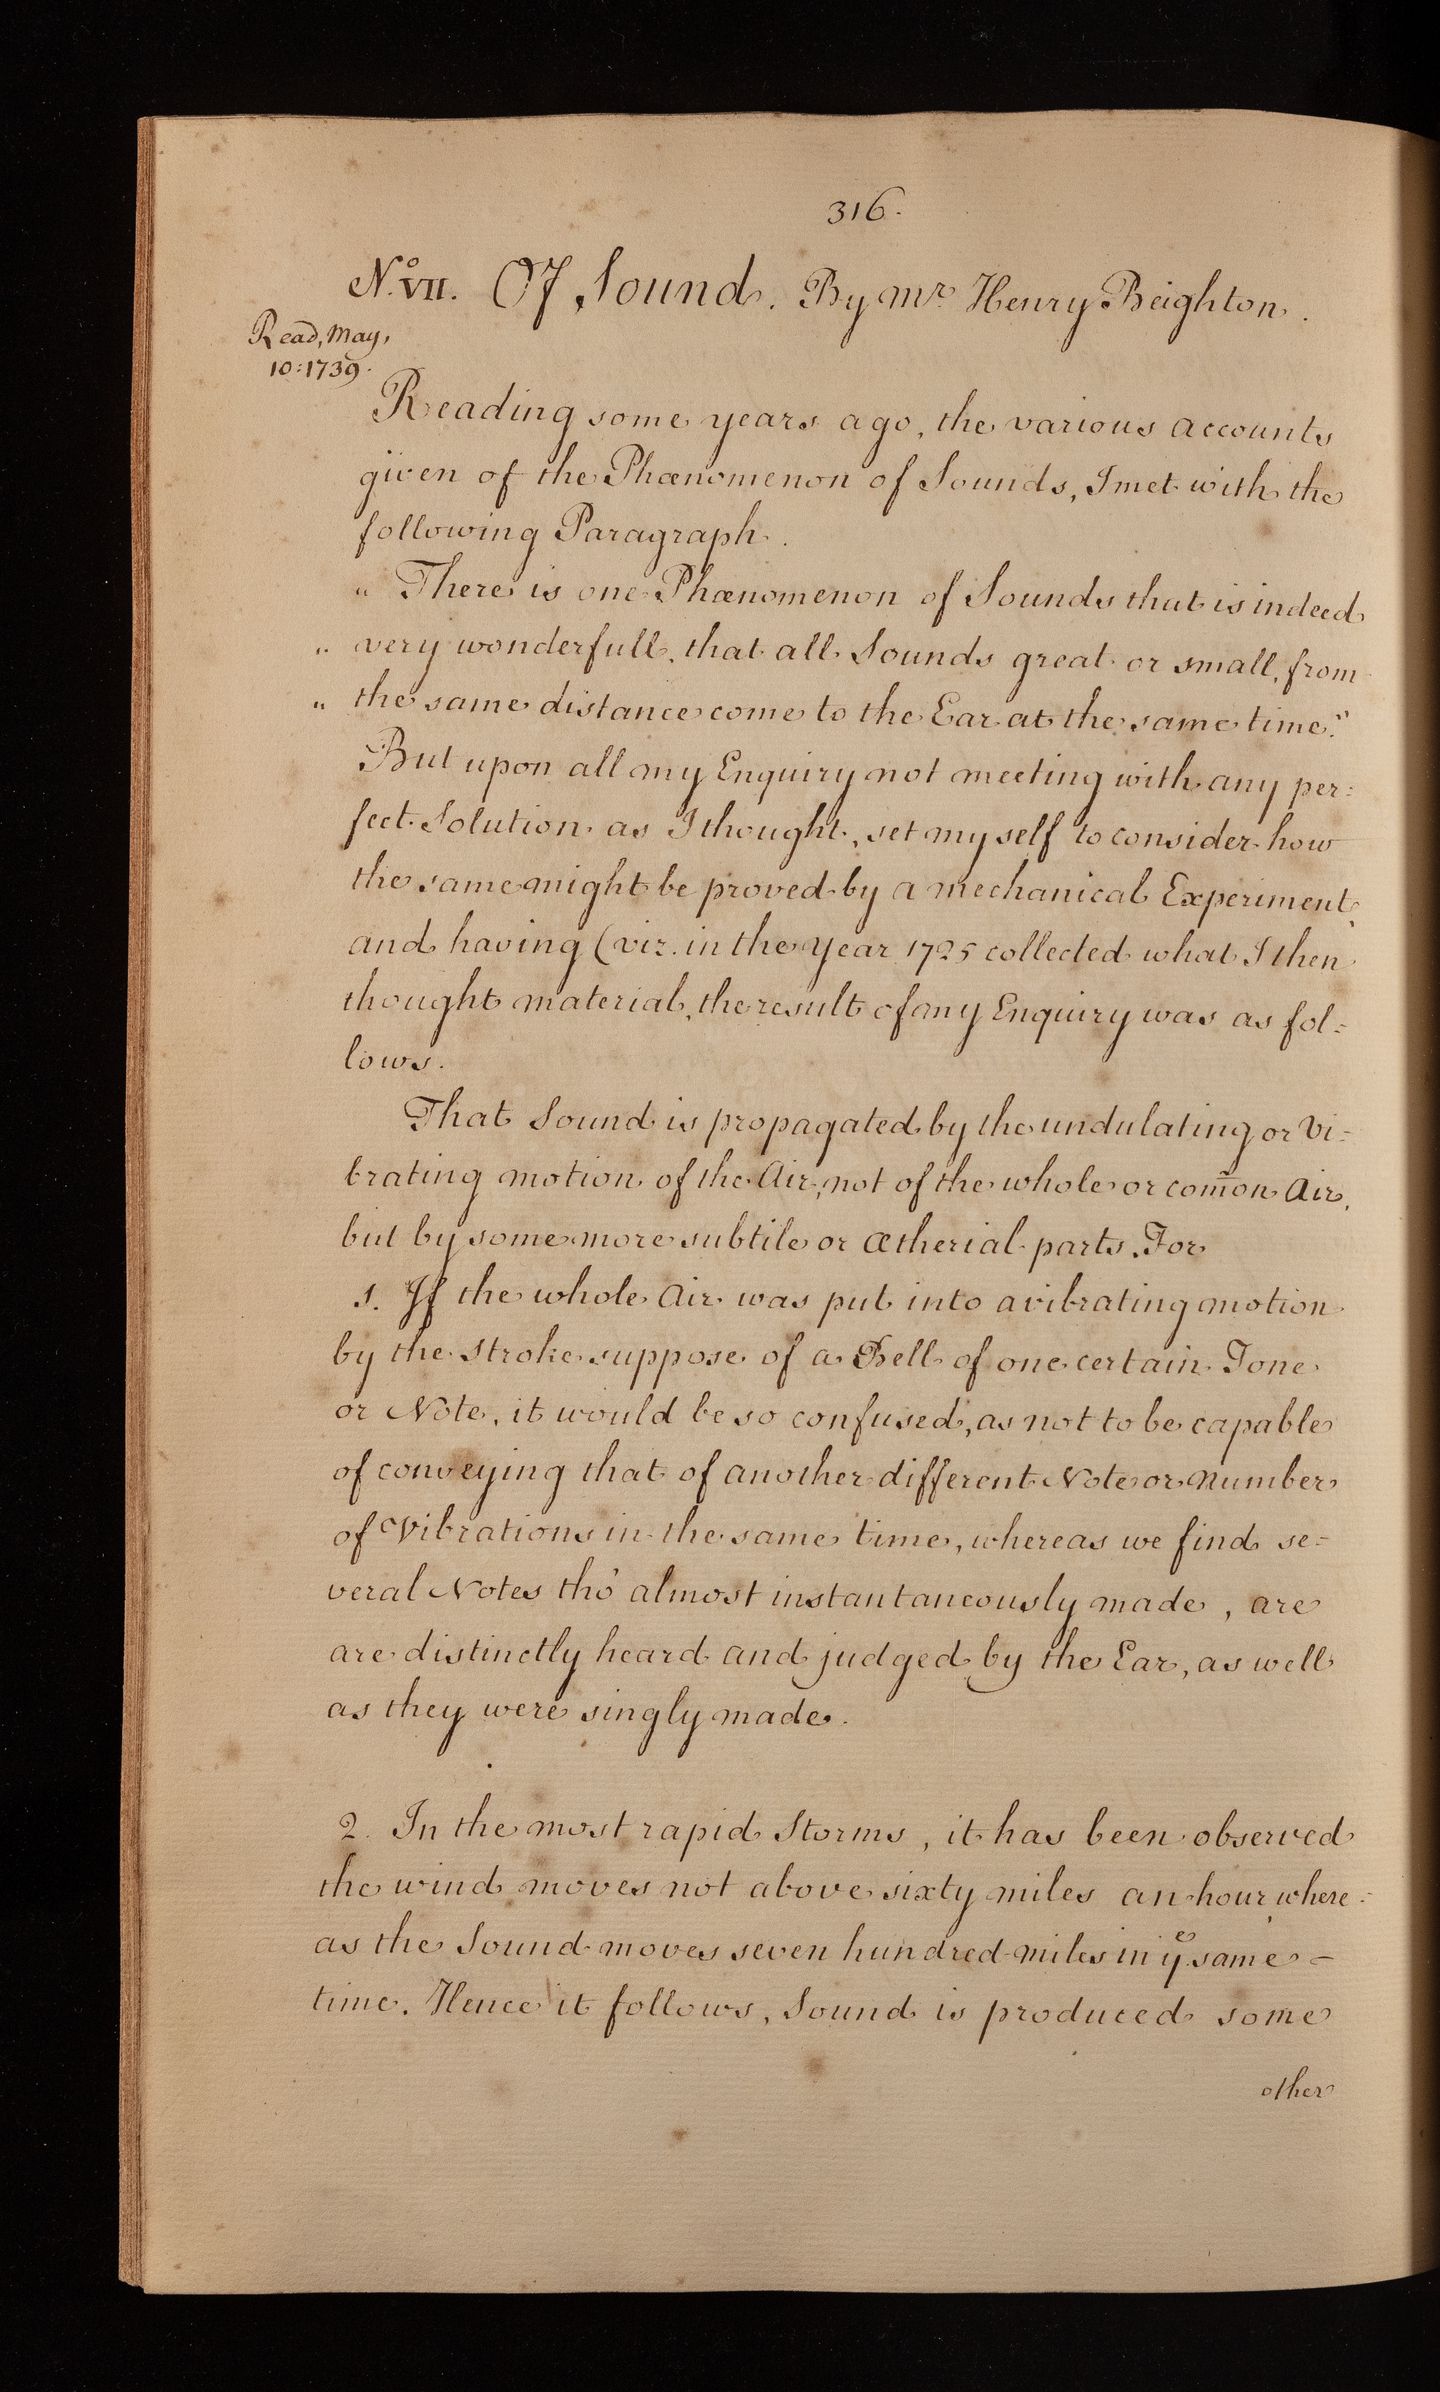 316.
N.º VII. Of Sound. By Mr Henry Beighton.
Read, May,
10:1739.
Reading some years ago, the various accounts
given of the Phœnomenon of Sounds, I met with the
following Paragraph.
" There is one Phœnomenon of Sounds that is indeed
" very wonderfull, that all Sounds great or small, from
" the same distance come to the Ear at the same time."
But upon all my Enquiry not meeting with any per=
fect Solution as I thought, set my self to consider how
the same might be proved by a mechanical Experiment,
and having (viz. in the year 1725 collected what I then
thought material, the result of my Enquiry was as fol=
lows.
That Sound is propagated by the undulating or Vi=
brating motion of the Air, not of the whole or com̄on Air,
but by some more subtile or ætherial parts. For
1. If the whole Air was put into a vibrating motion
by the stroke suppose of a Bell of one certain Tone
or Note, it would be so confused, as not to be capable
of conveying that of another different Note or number
of Vibrations in the same time, whereas we find se=
veral Notes tho' almost instantaneously made, are
are distinctly heard and judged by the Ear, as well
as they were singly made.
2. In the most rapid Storms, it has been observed
the wind moves not above sixty miles an hour, where=
as the Sound moves seven hundred miles in yᵉ same =
time. Hence it follows, Sound is produced some
other